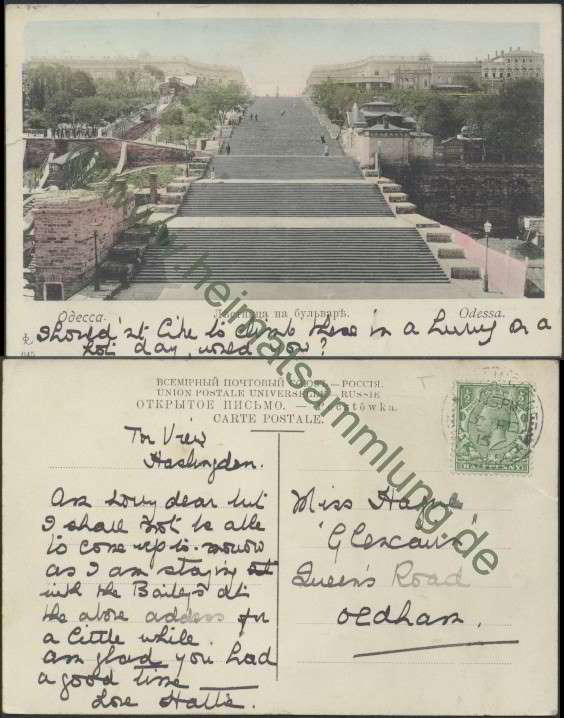 Одесса.
Лѣстница на бульварѣ.
Odessa.
I should'nt like to climb these in a hurry on a
hot day, would you?
www.heimatsammlung.de
ВСЕМІРНЫЙ ПОЧТОВЫЙ СОЮЗЪ. — РОССІЯ.
UNION POSTALE UNIVERSELLE. RUSSIE
ОТКРЫТОЕ ПИСЬМО. —
CARTE POSTALE.
HALFPENNY
Tor View
Haslingden.
Am sorry dear but
I shall not be able
to come up to-morrow
as I am staying
with the Baileys at
the above address for
a little while.
am glad you had
a good time
Love Hattie.
Miss
"Glencairn"
Queen's Road
Oldham.